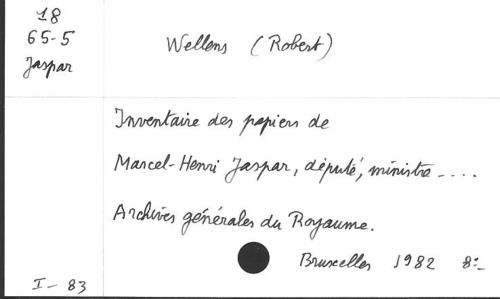 18
65-5
Jaspar
Wellens (Robert)
Inventaire des papiers de
Marcel-Henri Jaspar, député, ministre ....
Archives générales du Royaume.
Bruxelles 1982 8:-
I - 83